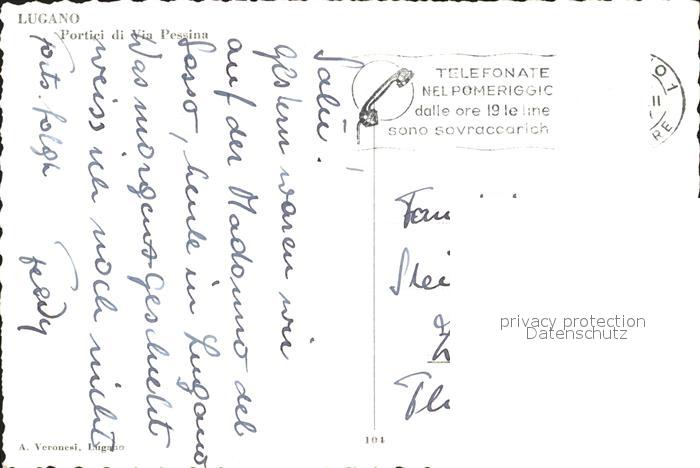 LUGANO
Portici di Via Pessina
Salü!
Gestern waren wir
auf der Madonna del
Sasso, heute in Lugano
Was morgens geschieht
weiss ich noch nicht
Forts. folgt
Fredy
TELEFONATE
NEL POMERIGGIO
dalle ore 19 le linee
sono sovraccarich
O 1
II
RE
Fam
Stei
Z
Th
privacy protection
Datenschutz
A. Veronesi, Lugano
104